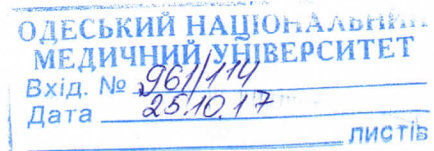 ОДЕСЬКИЙ НАЦІОНАЛЬНИЙ
МЕДИЧНИЙ УНІВЕРСИТЕТ
Вхід. № 961/114
Дата 25.10.17
листів